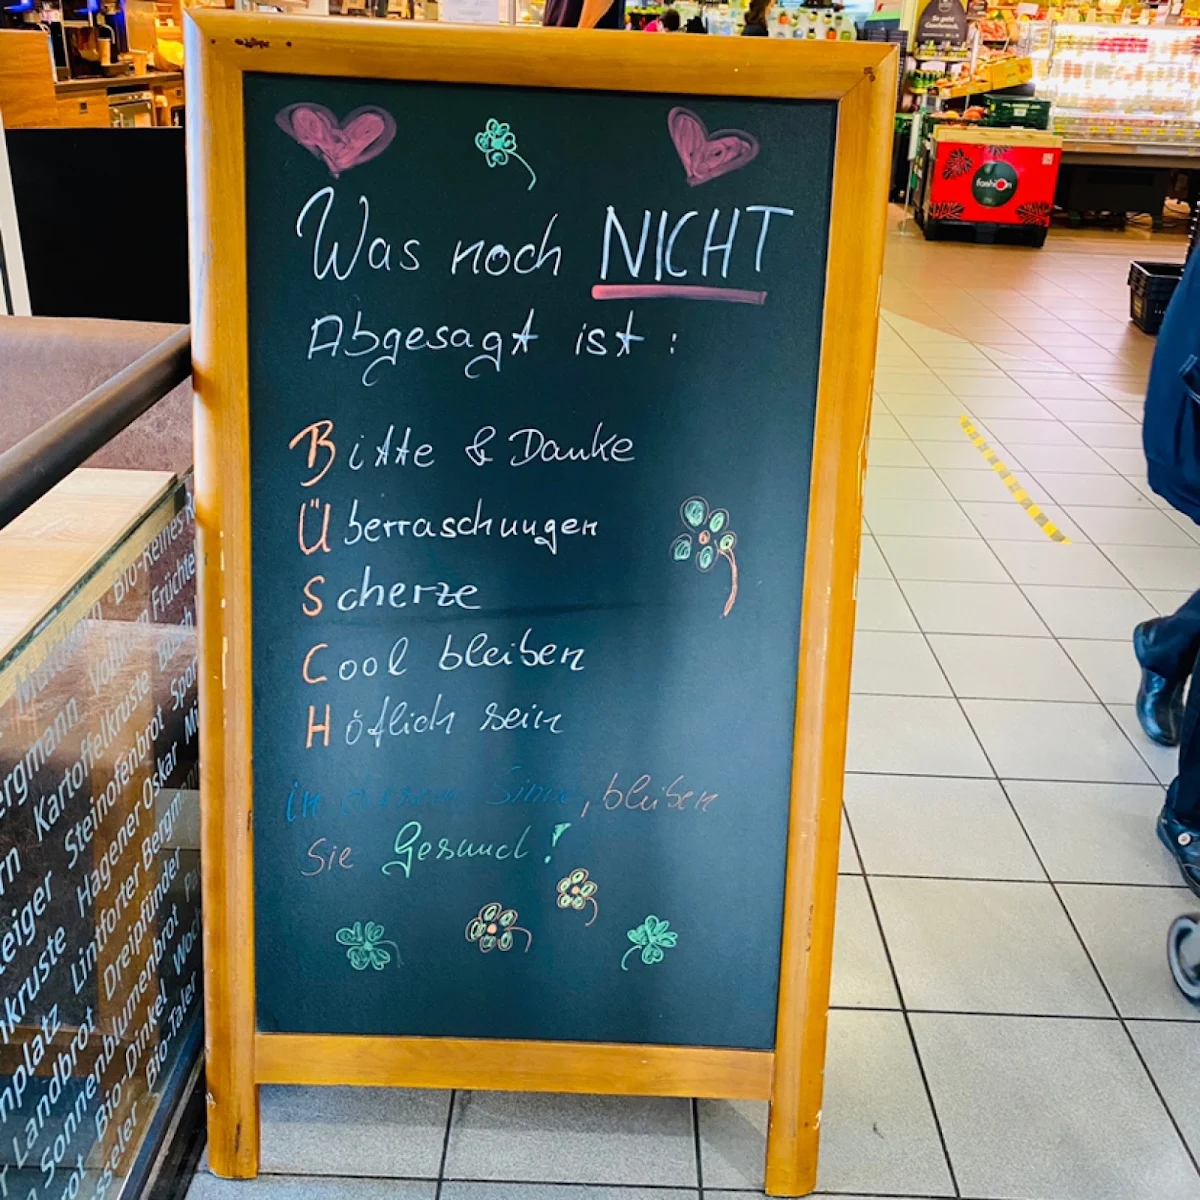 Was noch NICHT
Abgesagt ist:
Bitte & Danke
Überraschungen
Scherze
Cool bleiben
Höflich sein
in diesem Sinne, bleiben
Sie Gesund!
fashiOn
Bio-Reines
Früchte
Kartoffelkruste
Steinofenbrot
Hagener Oskar
Lintforter Bergm
Dreipfünder
Landbrot
Sonnenblumenbrot
Bio-Dinkel
Bio-Taler